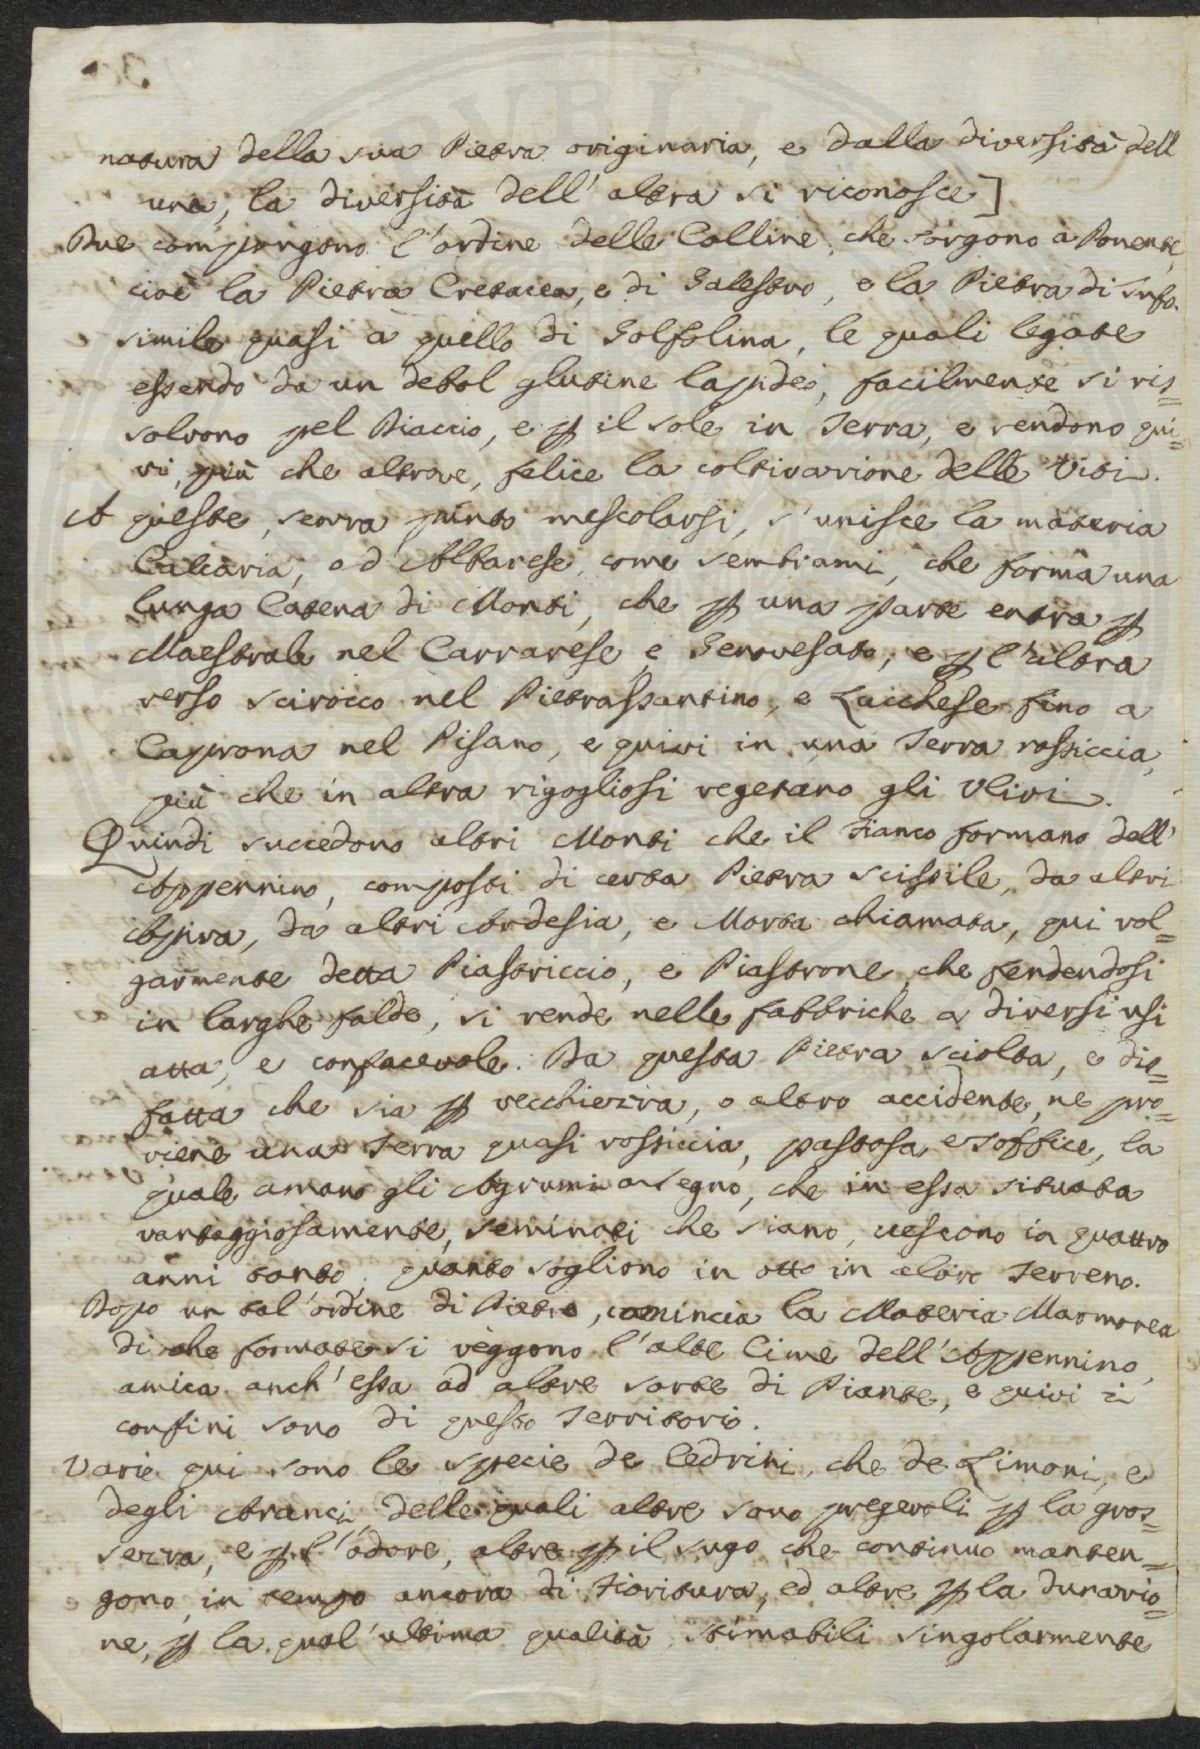 natura della sua Pietra originaria, e dalla diversità dell
una, la diversità dell' altra si riconosce]
Due compongono l'ordine delle Colline, che sorgono a Ponente,
cioè la Pietra Cretacea, e di Galestro, e la Pietra di Tufo
simile quasi a quello di Golfolina, le quali legate
essendo da un debol glutine lapideo, facilmente si ris=
solvono pel Diaccio, e ꝑ il sole in Terra, e rendono qui=
vi, più che altrove, felice la coltivazione delle Viti.
A queste, senza punto mescolarsi, s'unisce la materia
Calcaria, od Albarese, come sembrami, che forma una
lunga Catena di Monti, che ꝑ una parte entra ꝑ
Maestrale nel Carrarese, e Genovesato, e ꝑ l'altra
verso scirocco nel Pietrassantino, e Lucchese fino a
Caprona nel Pisano, e quivi in una Terra rossiccia,
più che in altra rigogliosi vegetano gli Ulivi.
Quindi succedono altri Monti che il fianco formano dell'
Appennino, composti di certa Pietra scissile, da altri
Apira, da altri Ardesia, e Morta chiamata, qui vol=
garmente detta Piastriccio, e Piastrone, che fendendosi
in larghe falde, si rende nelle fabbriche a diversi usi
atta, e confacevole. Da questa Pietra sciolta, e dis=
fatta che sia ꝑ vecchiezza, o altro accidente, ne pro=
viene una Terra quasi rossiccia, pastosa, e soffice, la
quale amano gli Agrumi a segno, che in essa situata
vantaggiosamente, seminati che siano, crescono in quattro
anni tanto, quanto sogliono in otto in altro Terreno.
Dopo un tal'ordine di Pietre, comincia la Materia Marmorea
di che formate si veggono l'alte Cime dell'Appennino,
amica anch'essa ad altre sorte di Piante, e quivi i
confini sono di questo Territorio.
Varie qui sono le specie de Cedrini, che de Limoni, e
degli Aranci, delle quali altre sono pregevoli ꝑ la gros=
sezza, e ꝑ l'odore, altre ꝑ il sugo che continuo manten=
gono, in tempo ancora di fioritura, ed altre ꝑ la durazio=
ne, ꝑ la qual'ultima qualità, stimabili singolarmente